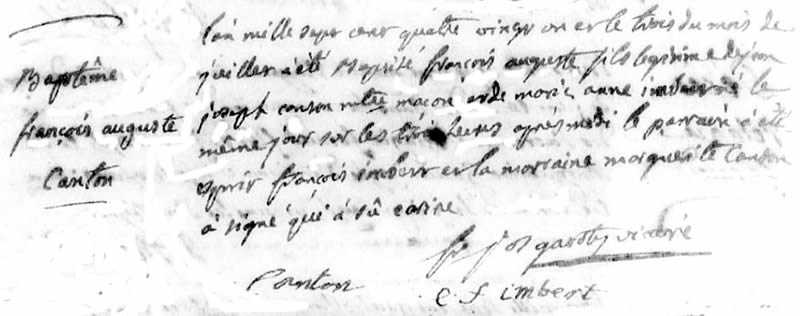 Baptême
françois auguste
Canton
l'an mille sept cent quatre vingt on et le trois du mois de
juillet a été Baptisé françois auguste fils legitime de jean
joseph canton mtre macon et de marie anne imbert né le
même jour sur les trois heures aprés midi le parrain a été
esprit françois imbert et la marraine marguerite Canton
a signé qui a su ecrire
vicaire
Canton
e f imbert